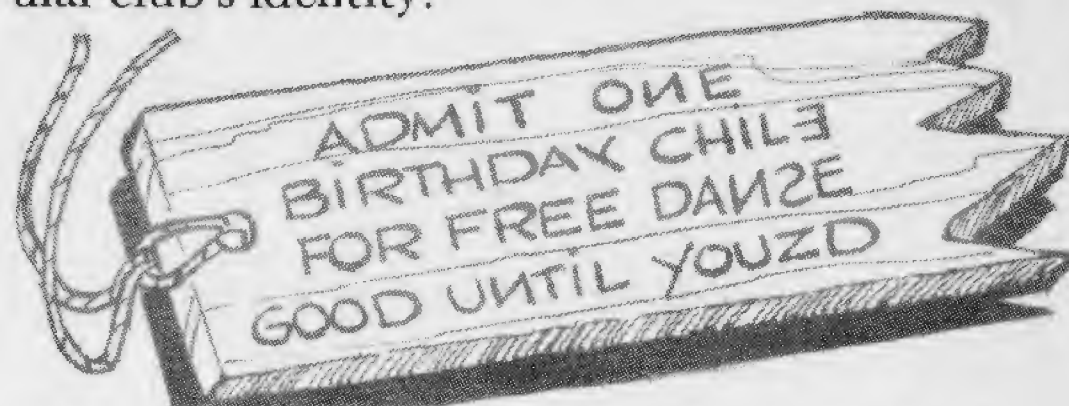 ular club's identity.
ADMIT ONE
BIRTHDAY CHILE
FOR FREE DANZE
GOOD UNTIL YOUZD